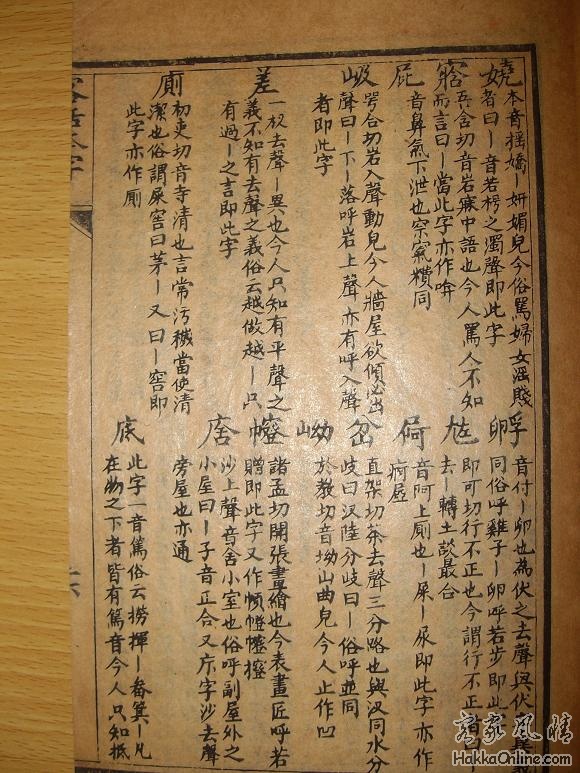 嬈
本音揺嬌丨妍媚皃今俗罵婦女滛賤
者曰丨音若楞之濁聲即此字
吾含切音岩寐中語也今人罵人不知
而言曰丨當此字亦作唵
屁
音鼻氣下泄也屄氣糟同
岋
号合切岩入聲動皃今人牆屋欲傾必出
聲曰丨下丨落呼岩上聲亦有呼入聲
者即此字
差
一杈去聲丨異也今人只知有平聲之
義不知有去聲之義俗云越做越丨只
有過丨之言即此字
廁
初吏切音寺清也言常污穢當使清
潔也俗謂屎窖曰茅丨又曰丨窖即
此字亦作厠
孵
音付丨卵也為伏之去聲與伏
同俗呼雞子丨卵呼若步即此
尪
即可切行不正也今謂行不正
去丨轉土談最合
屙
音阿上廁也丨屎丨尿即此字亦作
痾
岔
直架切茶去聲三分路也與汊同水分
歧曰汊陸分歧曰丨俗呼並同
岰
於教切音坳山曲皃今人止作凹
㡧
諸孟切開張畫繪也今表畫匠呼若
贈即此字又作幁
㡿
沙上聲音舍小室也俗呼副屋外之
小屋曰丨子音正合又庌字沙去聲
旁屋也亦通
底
此字一音篤俗云撈揮丨畚箕丨凡
在物之下者皆有篤音今人只知抵
客家風情
HakkaOnline.com